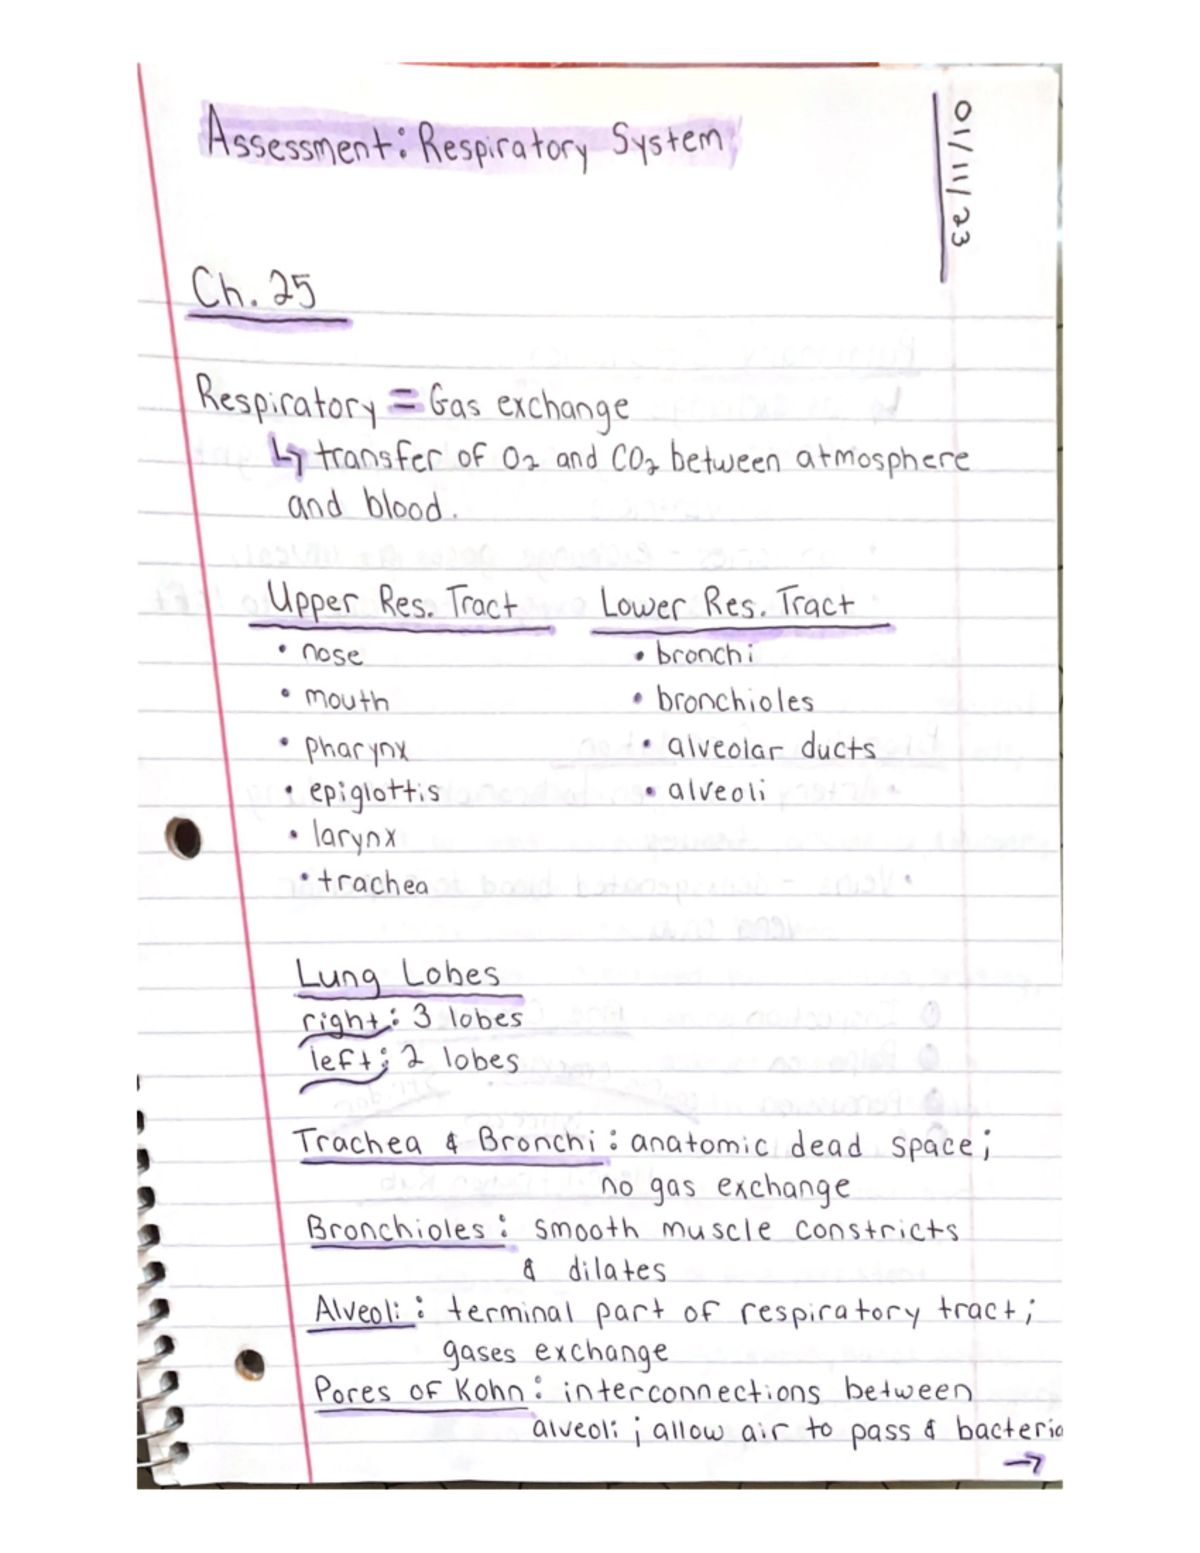 Assessment: Respiratory System
01/11/23
Ch. 25
Respiratory = Gas exchange
↳ transfer of O₂ and CO₂ between atmosphere
and blood.
Upper Res. Tract
• nose
• mouth
• pharynx
• epiglottis
• larynx
• trachea
Lower Res. Tract
• bronchi
• bronchioles
• alveolar ducts
• alveoli
Lung Lobes
right: 3 lobes
left: 2 lobes
Trachea & Bronchi: anatomic dead space;
no gas exchange
Bronchioles: smooth muscle constricts
& dilates
Alveoli: terminal part of respiratory tract;
gases exchange
Pores of Kohn: interconnections between
alveoli; allow air to pass & bacteria
→